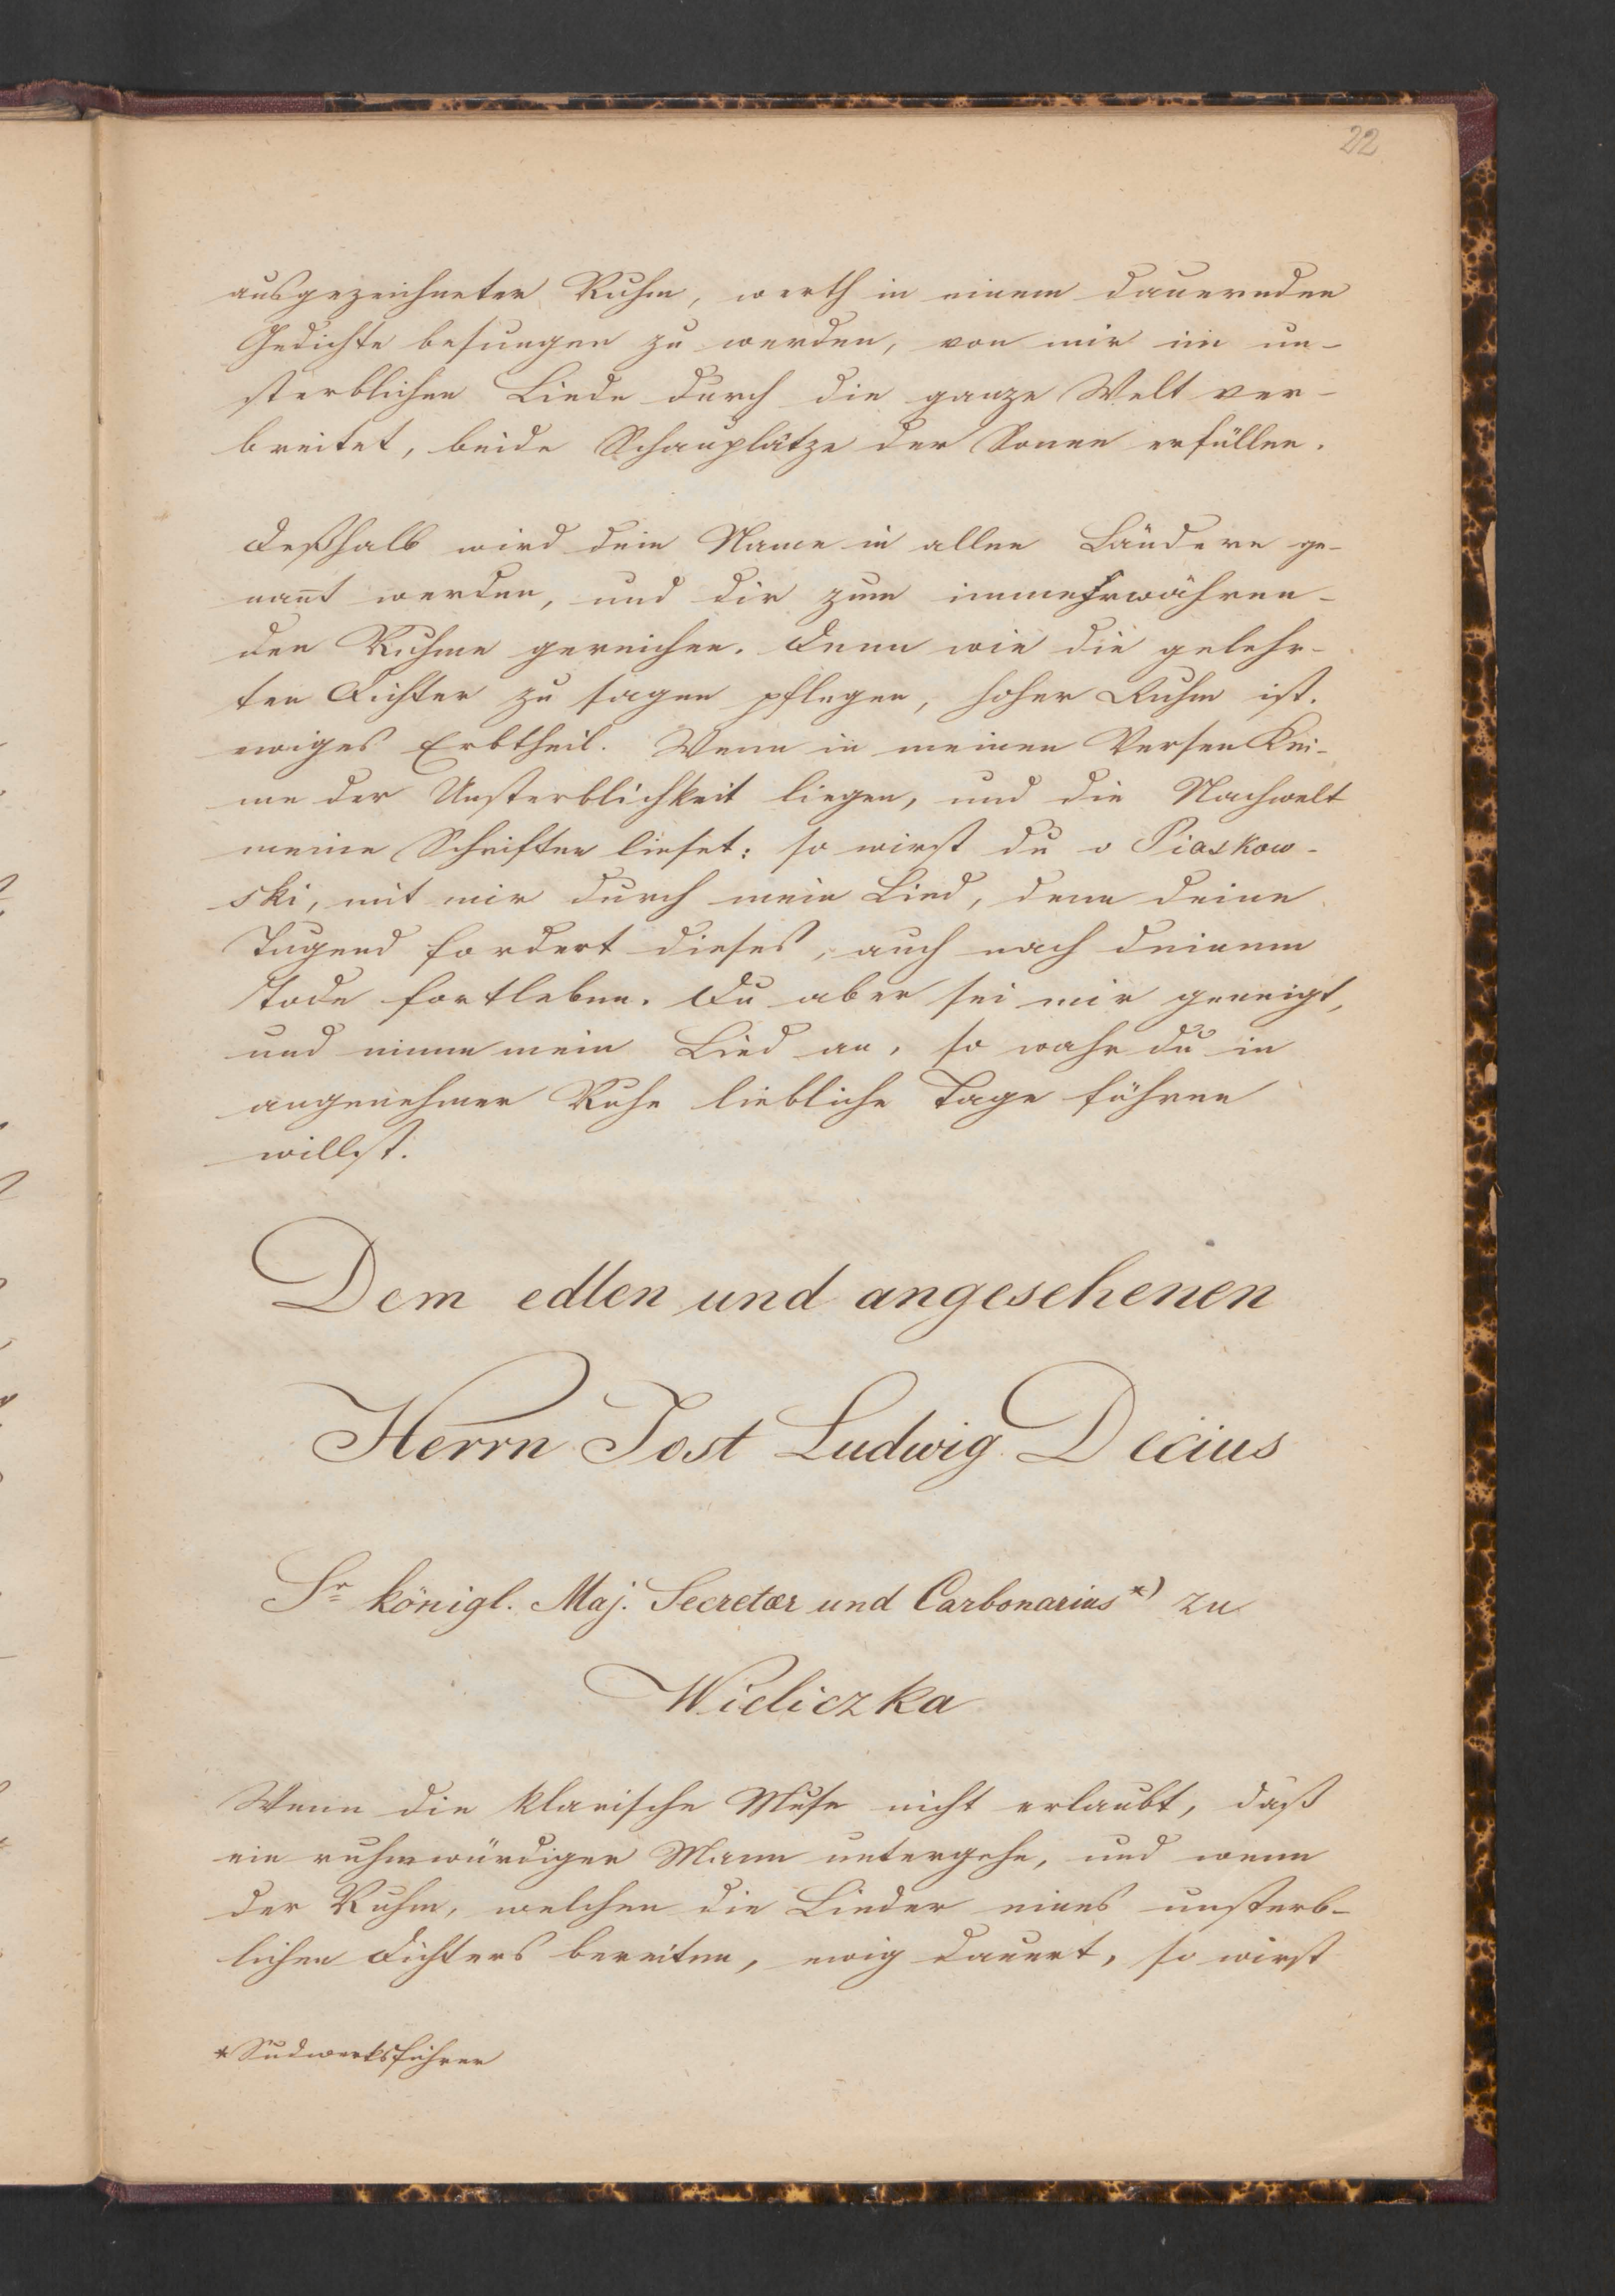 22
ausgezeichneter Ruhm, werth in einem dauernden
Gedichte besungen zu werden, von mir im un-
sterblichen Liede durch die ganze Welt ver-
breitet, beide Schauplätze der Sonne erfüllen.
Deßhalb wird dein Name in allen Ländern ge-
nañt werden, und dir zum immerwähren-
den Ruhme gereichen. Denn wie die gelehr-
ten Dichter zu sagen pflegen, hoher Ruhm ist
ewiges Erbtheil. Wenn in meinen Versen Kei-
me der Unsterblichkeit liegen, und die Nachwelt
meine Schriften lieset: so wirst du o Piaskow-
ski, mit mir durch mein Lied, denn deine
Tugend fordert dieses, auch nach deinem
Tode fortleben. Du aber sei mir geneigt,
und nimm mein Lied an, so wahr du in
angenehmer Ruhe liebliche Tage führen
willst.
Dem edlen und angesehenen
Herrn Jost Ludwig Decius
Sr königl. Maj. Secretær und Carbonarius*) zu
Wieliczka
Wenn die klarische Muse nicht erlaubt, daß
ein ruhmwürdiger Mann untergehe, und wenn
der Ruhm, welchen die Lieder eines unsterb-
lichen Dichters bereiten, ewig dauert, so wirst
* Sudwerksführer